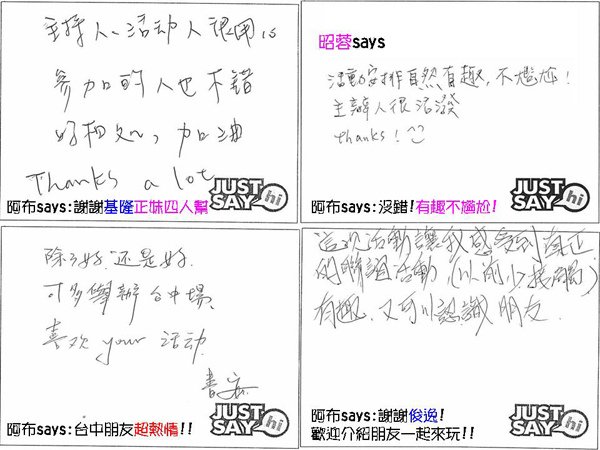 主持人、活動人很用心
參加的人也不錯
好相處,加油
Thanks a lot
JUST SAY hi
阿布says:謝謝基隆正妹四人幫
昭蓉says
活動安排自然有趣,不尷尬!
主辦人很活潑
thanks!
JUST SAY hi
阿布says:沒錯!有趣不尷尬!
除了好.還是好.
可多舉辦台中場.
喜欢 your 活动.
JUST SAY hi
阿布says:台中朋友超熱情!!
這次活動讓我感受到真正
的聯誼活動(以前少接觸)
有趣.又可以認識朋友.
JUST SAY hi
阿布says:謝謝俊逸!
歡迎介紹朋友一起來玩!!